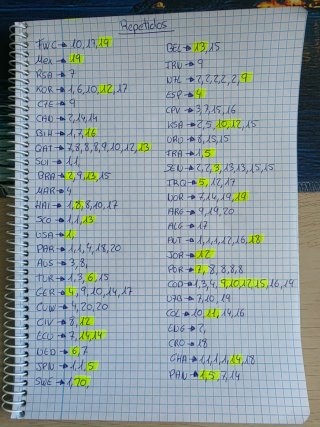 Repetidos
FWC → 10, 17, 19
Mex → 19
RSA → 7
KOR → 1, 6, 10, 12, 17
CZE → 9
CAN → 2, 14, 14
BIH → 1, 7, 16
QAT → 7, 8, 8, 8, 9, 10, 12, 13
SUI → 1, 1,
BRA → 2, 9, 13, 15
MAR → 4
HAI → 1, 8, 8, 10, 17
SCO → 1, 1, 13
USA → 1,
PAR → 1, 1, 4, 18, 20
AUS → 3, 8,
TUR → 1, 3, 6, 15
GER → 4, 9, 10, 14, 17
CUW → 4, 20, 20
CIV → 8, 12
ECU → 7, 14, 14
NED → 6, 7
JPN → 1, 1, 5
SWE → 1, 10,
BEL → 13, 15
IRN → 9
NZL → 2, 2, 2, 2, 2, 9
ESP → 4
CPV → 3, 7, 15, 16
KSA → 2, 5, 10, 12, 15
URU → 8, 15, 15
FRA → 1, 5
SEN → 2, 2, 3, 13, 13, 15, 15
IRQ → 5, 12, 17
NOR → 7, 14, 19, 19
ARG → 9, 19, 20
ALG → 17
AUT → 1, 1, 1, 12, 16, 18
JOR → 12
POR → 7, 8, 8, 8, 8
COD → 1, 3, 4, 9, 10, 12, 15, 16, 19
UZB → 7, 10, 19
COL → 10, 11, 14, 16
ENG → 2,
CRO → 18
GHA → 1, 1, 1, 1, 14, 18
PAN → 1, 5, 7, 14